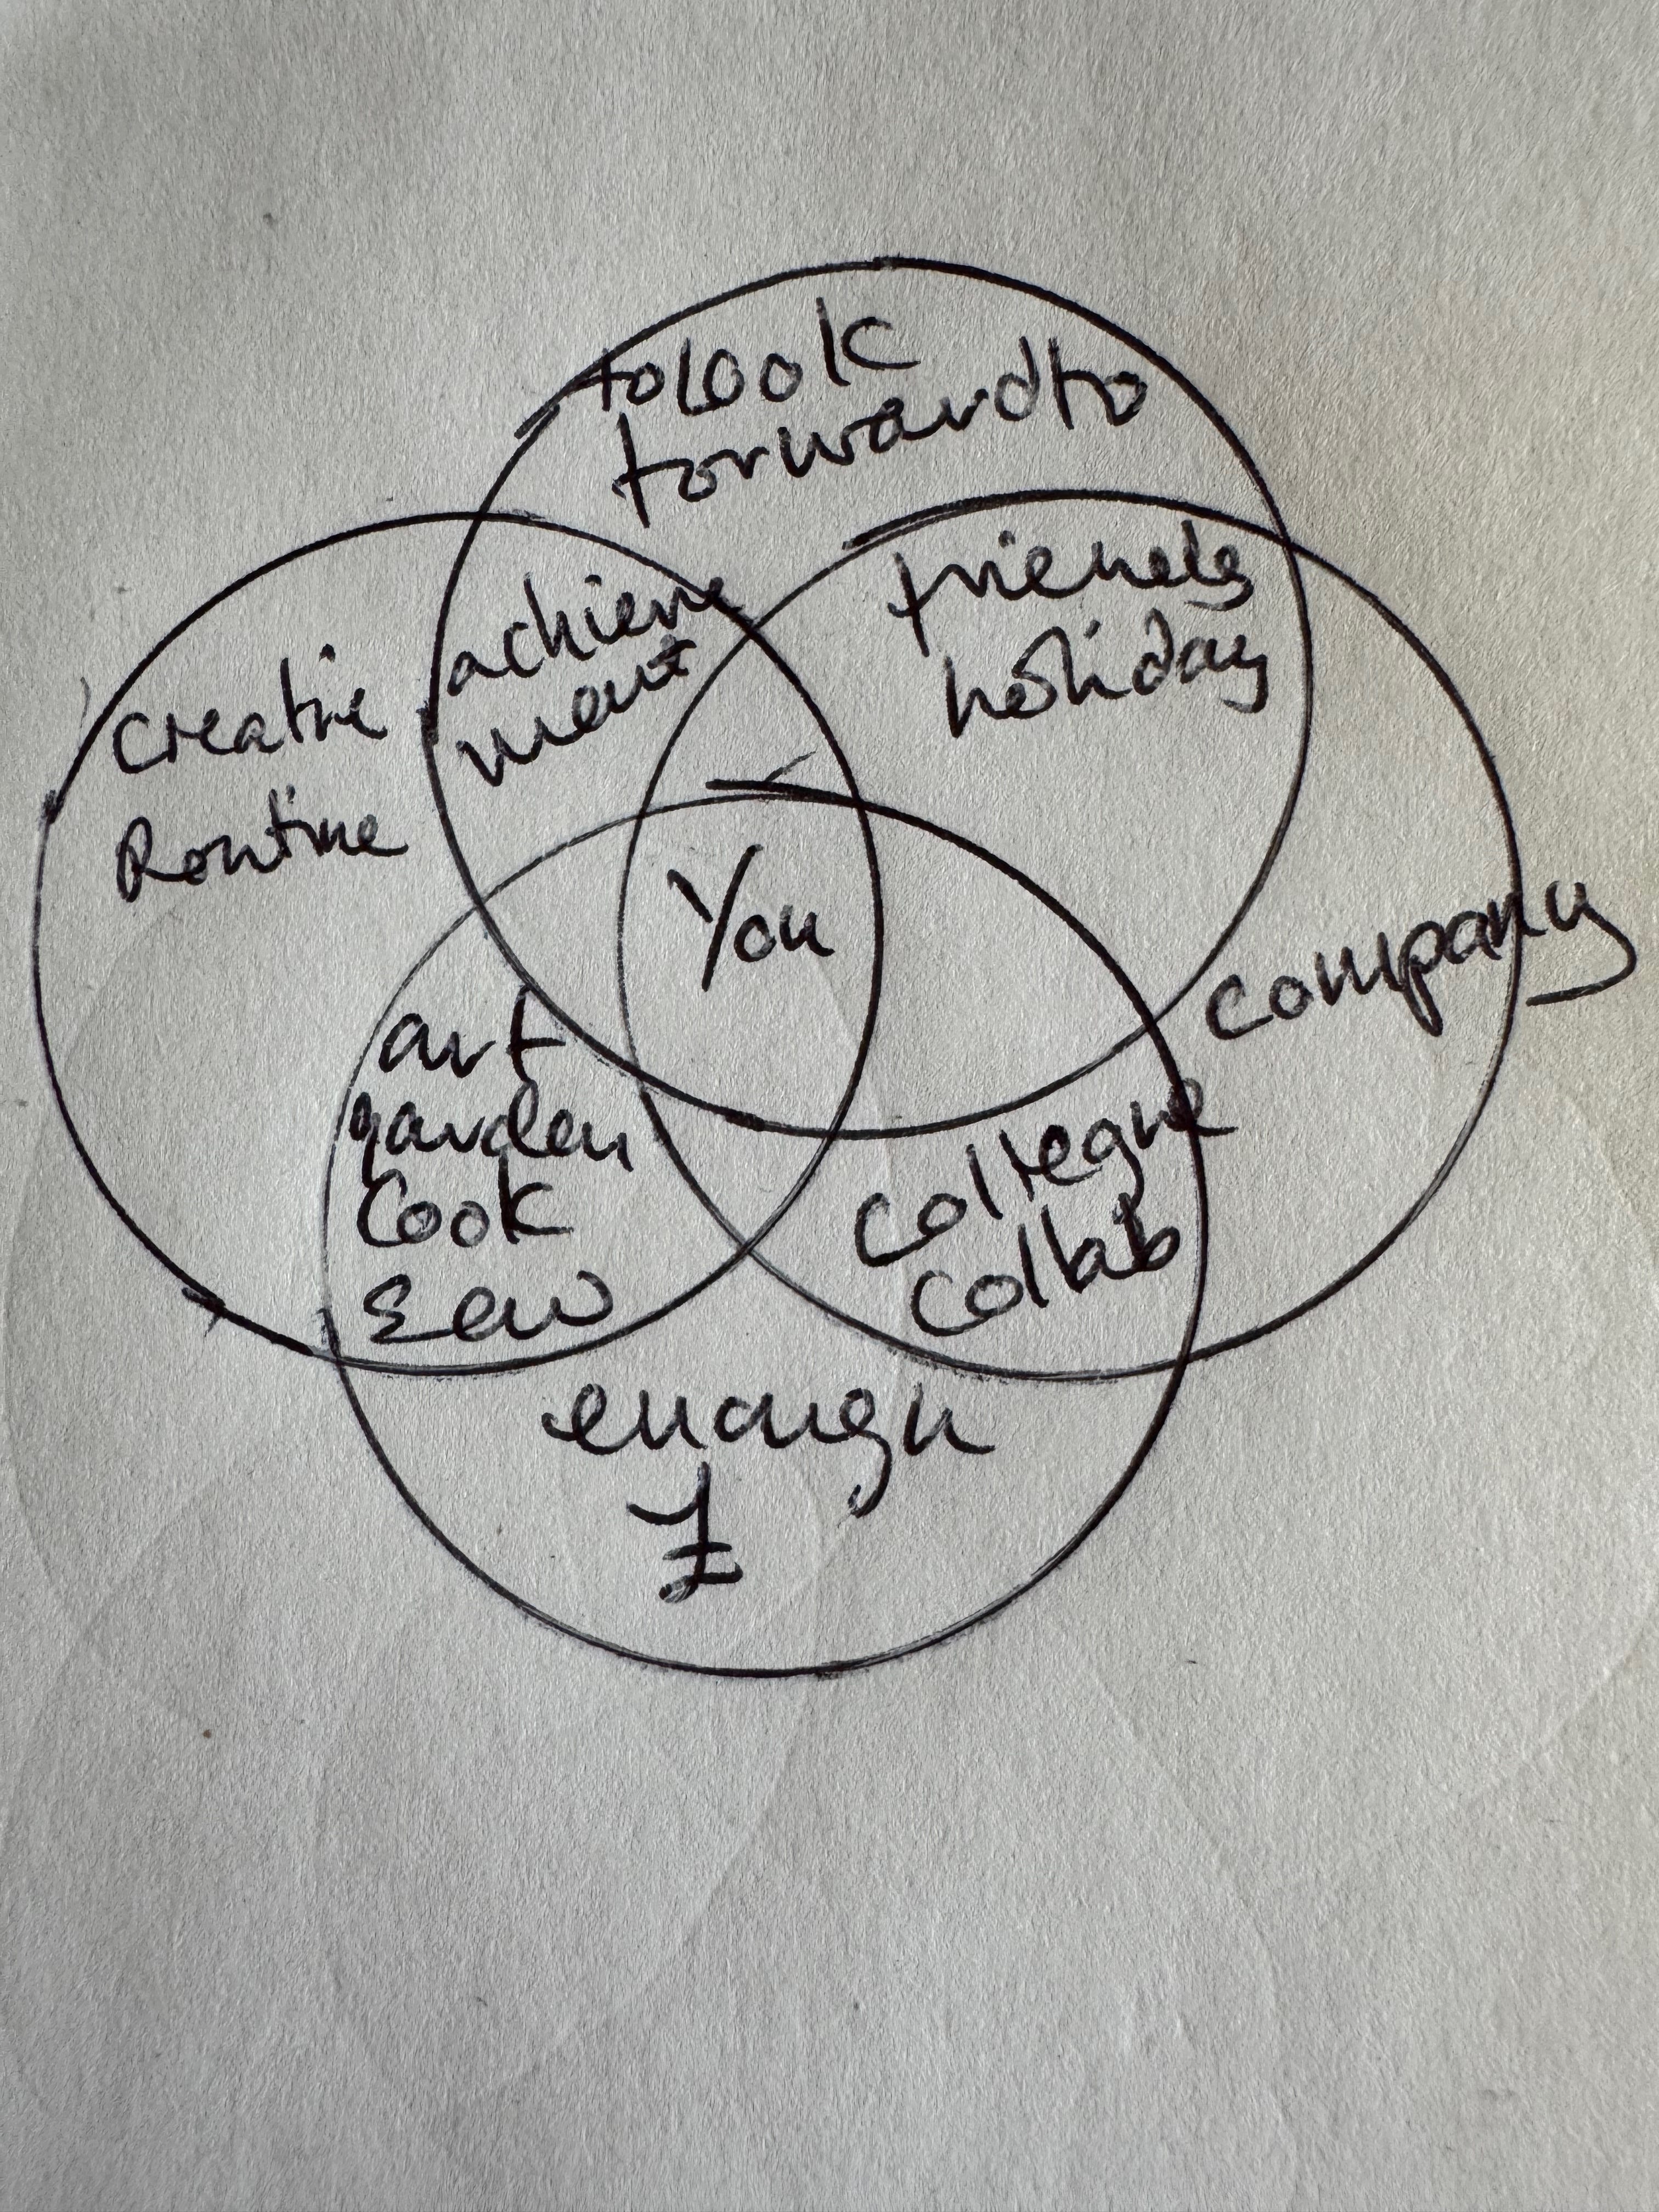 to look
forward to
friends
holiday
achieve
ment
creative
Routine
You
company
art
garden
Cook
Sew
collegue
collab
enough
£